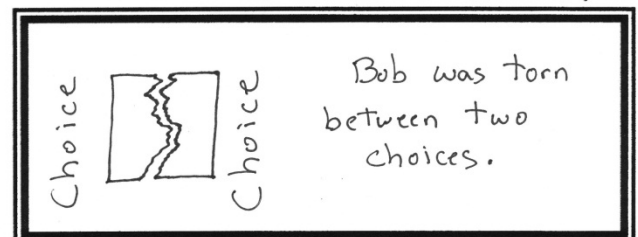 Choice
Choice
Bob was torn
between two
choices.